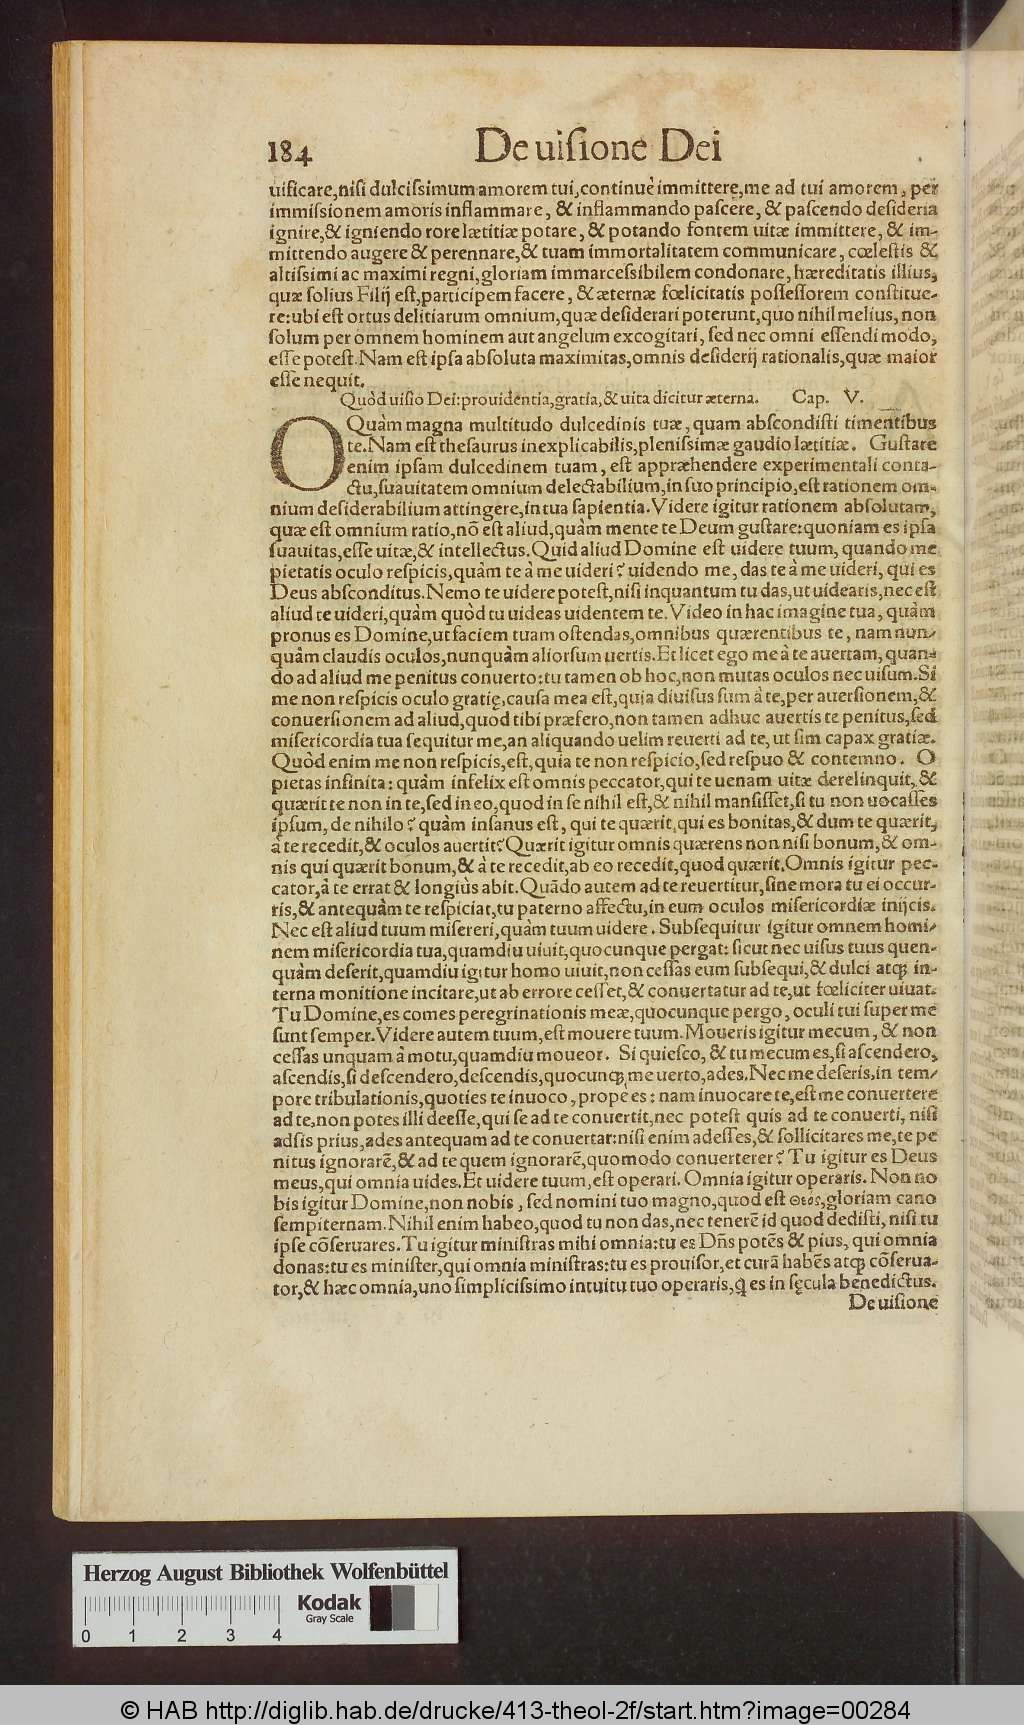 184 De uisione Dei
uificare,nisi dulcissimum amorem tui,continuè immittere,me ad tui amorem, per
immissionem amoris inflammare, & inflammando pascere, & pascendo desideria
ignire,& igniendo rore lætitiæ potare, & potando fontem uitæ immittere, & im-
mittendo augere & perennare,& tuam immortalitatem communicare, cœlestis &
altissimi ac maximi regni, gloriam immarcessibilem condonare, hæreditatis illius,
quæ solius Filij est,participem facere, & æternæ fœlicitatis possessorem constitue-
re:ubi est ortus delitiarum omnium,quæ desiderari poterunt,quo nihil melius, non
solum per omnem hominem aut angelum excogitari, sed nec omni essendi modo,
esse potest. Nam est ipsa absoluta maximitas,omnis desiderij rationalis,quæ maior
esse nequit.
Quòd uisio Dei:prouidentia,gratia,& uita dicitur æterna. Cap. V.
OQuàm magna multitudo dulcedinis tuæ, quam abscondisti timentibus
te. Nam est thesaurus inexplicabilis,plenissimæ gaudio lætitiæ. Gustare
enim ipsam dulcedinem tuam, est appræhendere experimentali conta-
ctu,suauitatem omnium delectabilium,in suo principio,est rationem om-
nium desiderabilium attingere,in tua sapientia. Videre igitur rationem absolutam,
quæ est omnium ratio,nõ est aliud,quàm mente te Deum gustare:quoniam es ipsa
suauitas,esse uitæ,& intellectus. Quid aliud Domine est uidere tuum, quando me
pietatis oculo respicis,quàm te à me uideri? uidendo me, das te à me uideri, qui es
Deus absconditus. Nemo te uidere potest,nisi inquantum tu das,ut uidearis,nec est
aliud te uideri,quàm quòd tu uideas uidentem te. Video in hac imagine tua, quàm
pronus es Domine,ut faciem tuam ostendas,omnibus quærentibus te, nam nun-
quàm claudis oculos,nunquàm aliorsum uertis. Et licet ego me à te auertam, quan-
do ad aliud me penitus conuerto:tu tamen ob hoc,non mutas oculos nec uisum. Si
me non respicis oculo gratię,causa mea est,quia diuisus sum à te,per auersionem,&
conuersionem ad aliud,quod tibi præfero,non tamen adhuc auertis te penitus,sed
misericordia tua sequitur me,an aliquando uelim reuerti ad te,ut sim capax gratiæ.
Quòd enim me non respicis,est,quia te non respicio,sed respuo & contemno. O
pietas infinita: quàm infelix est omnis peccator,qui te uenam uitæ derelinquit, &
quærit te non in te,sed in eo,quod in se nihil est,& nihil mansisset,si tu non uocasses
ipsum, de nihilo? quàm insanus est, qui te quærit,qui es bonitas,& dum te quærit,
à te recedit,& oculos auertit? Quærit igitur omnis quærens non nisi bonum,& om-
nis qui quærit bonum,& à te recedit,ab eo recedit,quod quærit. Omnis igitur pec-
cator,à te errat & longiùs abit. Quãdo autem ad te reuertitur,sine mora tu ei occur-
ris,& antequàm te respiciat,tu paterno affectu,in eum oculos misericordiæ inijcis.
Nec est aliud tuum misereri,quàm tuum uidere. Subsequitur igitur omnem homi-
nem misericordia tua,quamdiu uiuit,quocunque pergat: sicut nec uisus tuus quen-
quàm deserit,quamdiu igitur homo uiuit,non cessas eum subsequi,& dulci atq; in-
terna monitione incitare,ut ab errore cesset,& conuertatur ad te,ut fœliciter uiuat.
Tu Domine,es comes peregrinationis meæ,quocunque pergo, oculi tui super me
sunt semper. Videre autem tuum,est mouere tuum. Moueris igitur mecum, & non
cessas unquam à motu,quamdiu moueor. Si quiesco, & tu mecum es,si ascendero,
ascendis,si descendero,descendis,quocunq; me uerto,ades. Nec me deseris,in tem-
pore tribulationis,quoties te inuoco, propè es: nam inuocare te,est me conuertere
ad te,non potes illi deesse,qui se ad te conuertit,nec potest quis ad te conuerti, nisi
adsis prius,ades antequam ad te conuertar:nisi enim adesses,& sollicitares me,te pe
nitus ignorarẽ,& ad te quem ignorarẽ,quomodo conuerterer? Tu igitur es Deus
meus,qui omnia uides. Et uidere tuum,est operari. Omnia igitur operaris. Non no
bis igitur Domine,non nobis, sed nomini tuo magno,quod est θεός,gloriam cano
sempiternam. Nihil enim habeo,quod tu non das,nec tenerẽ id quod dedisti, nisi tu
ipse cõseruares. Tu igitur ministras mihi omnia:tu es Dñs potẽs & pius, qui omnia
donas:tu es minister,qui omnia ministras:tu es prouisor,et curã habẽs atq; cõserua-
tor,& hæc omnia,uno simplicissimo intuitu tuo operaris,q̃ es in sęcula benedictus.
De uisione
Herzog August Bibliothek Wolfenbüttel
Kodak
Gray Scale
0 1 2 3 4
© HAB http://diglib.hab.de/drucke/413-theol-2f/start.htm?image=00284